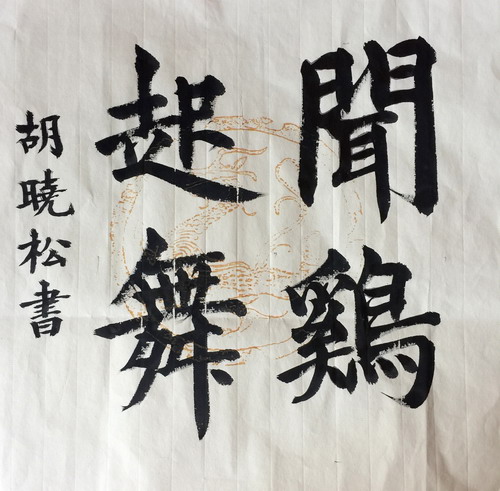 聞鷄
起舞
胡曉松書